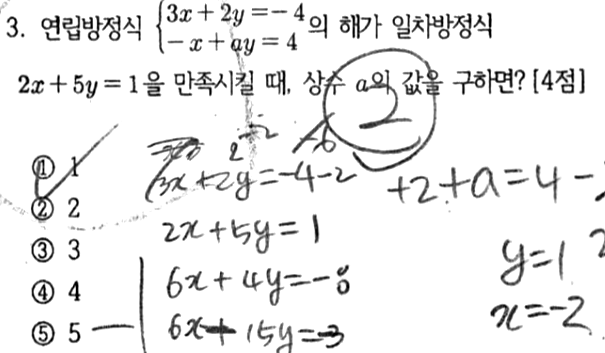 3. 연립방정식 { 3x + 2y = -4
-x + ay = 4 의 해가 일차방정식
2x + 5y = 1을 만족시킬 때, 상수 a의 값을 구하면? [4점]
2
① 1
② 2
③ 3
④ 4
⑤ 5
3x + 2y = -4 - 2
2x + 5y = 1
6x + 4y = -8
6x + 15y = 3
+2 + a = 4 -
y = 1
x = -2